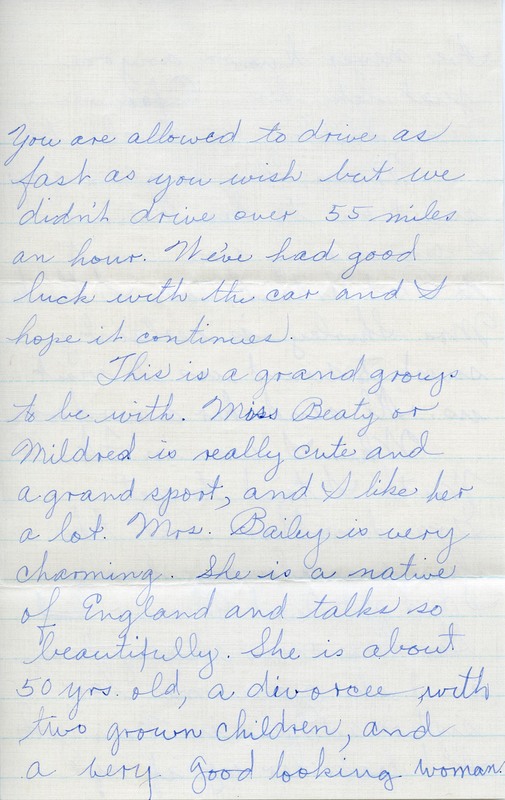 You are allowed to drive as
fast as you wish but we
didn't drive over 55 miles
an hour. We've had good
luck with the car and I
hope it continues.
This is a grand group
to be with. Miss Beaty or
Mildred is really cute and
a grand sport, and I like her
a lot. Mrs. Bailey is very
charming. She is a native
of England and talks so
beautifully. She is about
50 yrs. old, a divorcee with
two grown children, and
a very good looking woman.